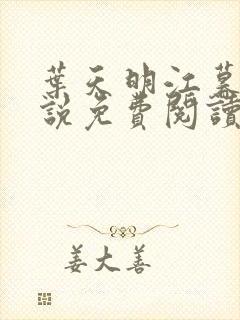 葉天明江慕
說免費閱讀
姜大善